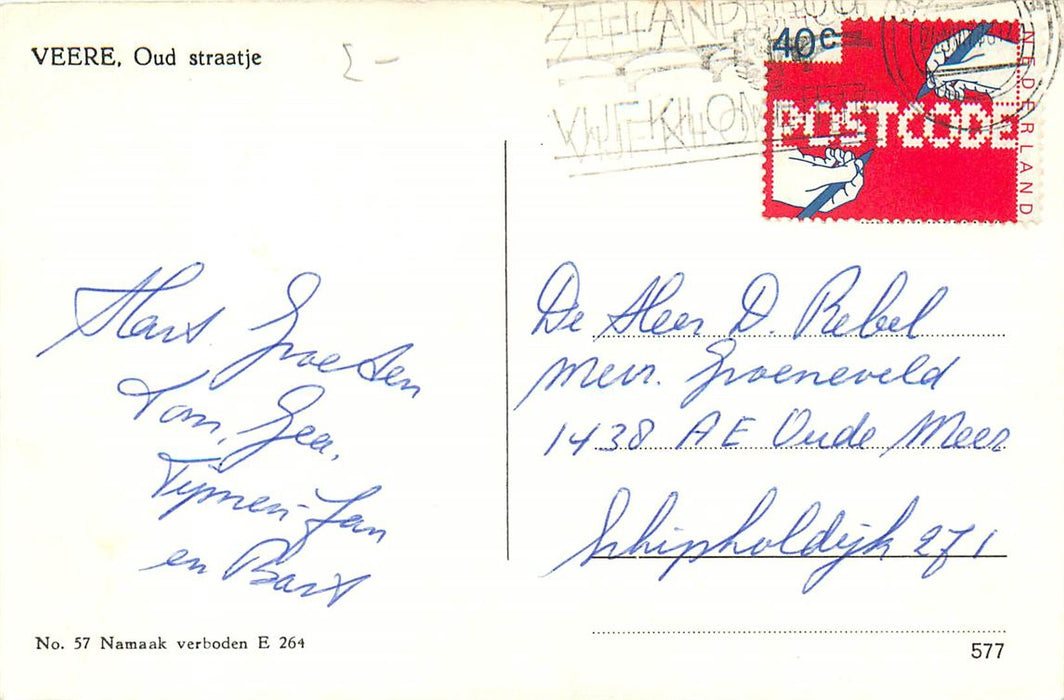 VEERE, Oud straatje
2-
ZEELANDBRUG
VIJF KILOMETER
40c
POSTCODE
NEDERLAND
Hart Groeten
Tom, Gea,
Tijmen-Jan
en Bart
De Heer D. Rebel
Mevr. Groeneveld
1438 AE Oude Meer
Schipholdijk 271
No. 57 Namaak verboden E 264
577